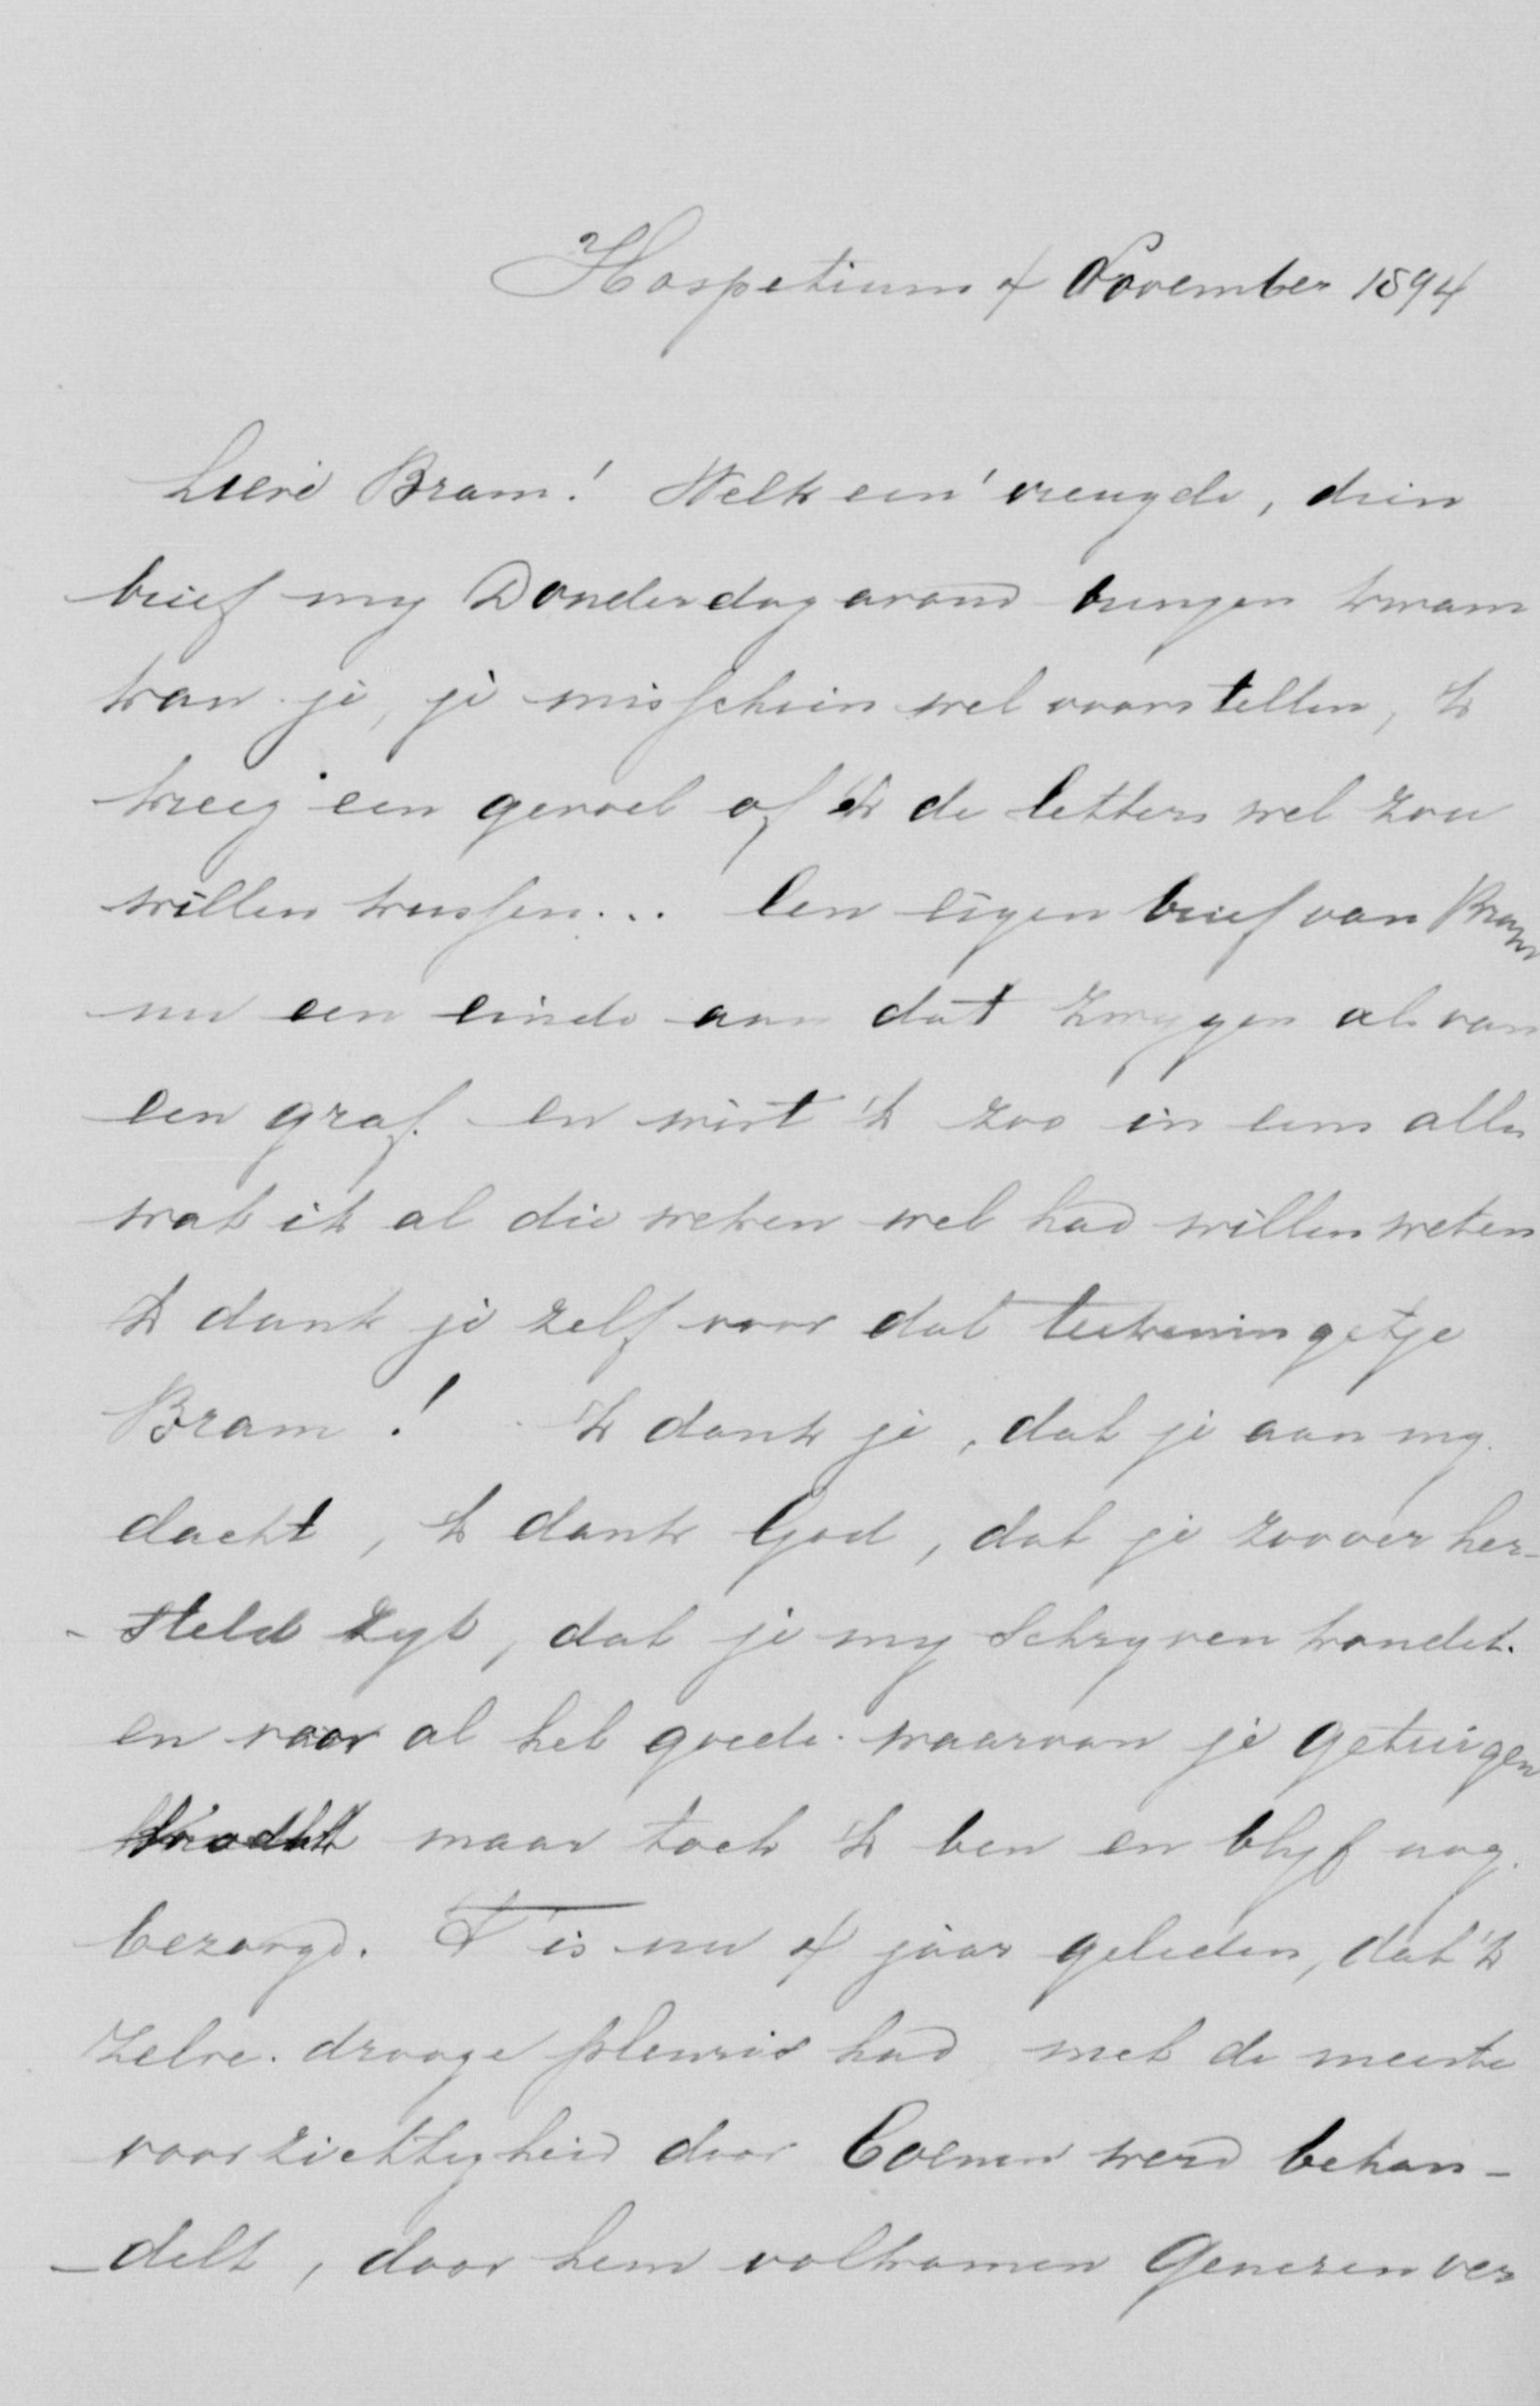 Hospetium 4 November 1894
Lieve Bram! Welk een vreugde, dien
brief my Donderdag avond brengen kwam
kan je, je misschien wel voorstellen, 'k
kreeg een gevoel of 'k de letters wel zou
willen kussen... Een eigen brief van Bram
nu een einde aan dat zwygen als van
een graf. en wist 'k zoo in eens alles
wat ik al die weken wel had willen weten
'k dank je zelf voor dat teekeningetje
Bram! 'k dank je, dat je aan my
dacht, 'k dank God, dat je zoover her-
-steld zyt, dat je my schryven kondet.
en voor al het goede waarvan je getuigen
maar toch 'k ben en blyf nog
bezorgd. 't is nu 4 jaar geleden, dat 'k
zelve drooge pleuris had met de meeste
voorzichtigheid door Coenen werd behan-
-delt, door hem volkomen genezen ver